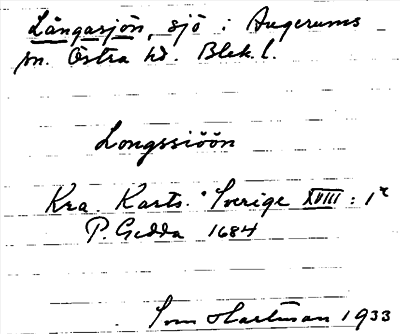 Långasjön, sjö i Augerums
sn. Östra hd. Blek. l.
Longssiöön
Kra. Karts. Sverige XVIII: 1
P. Gedda 1684
Sven Hartman 1933